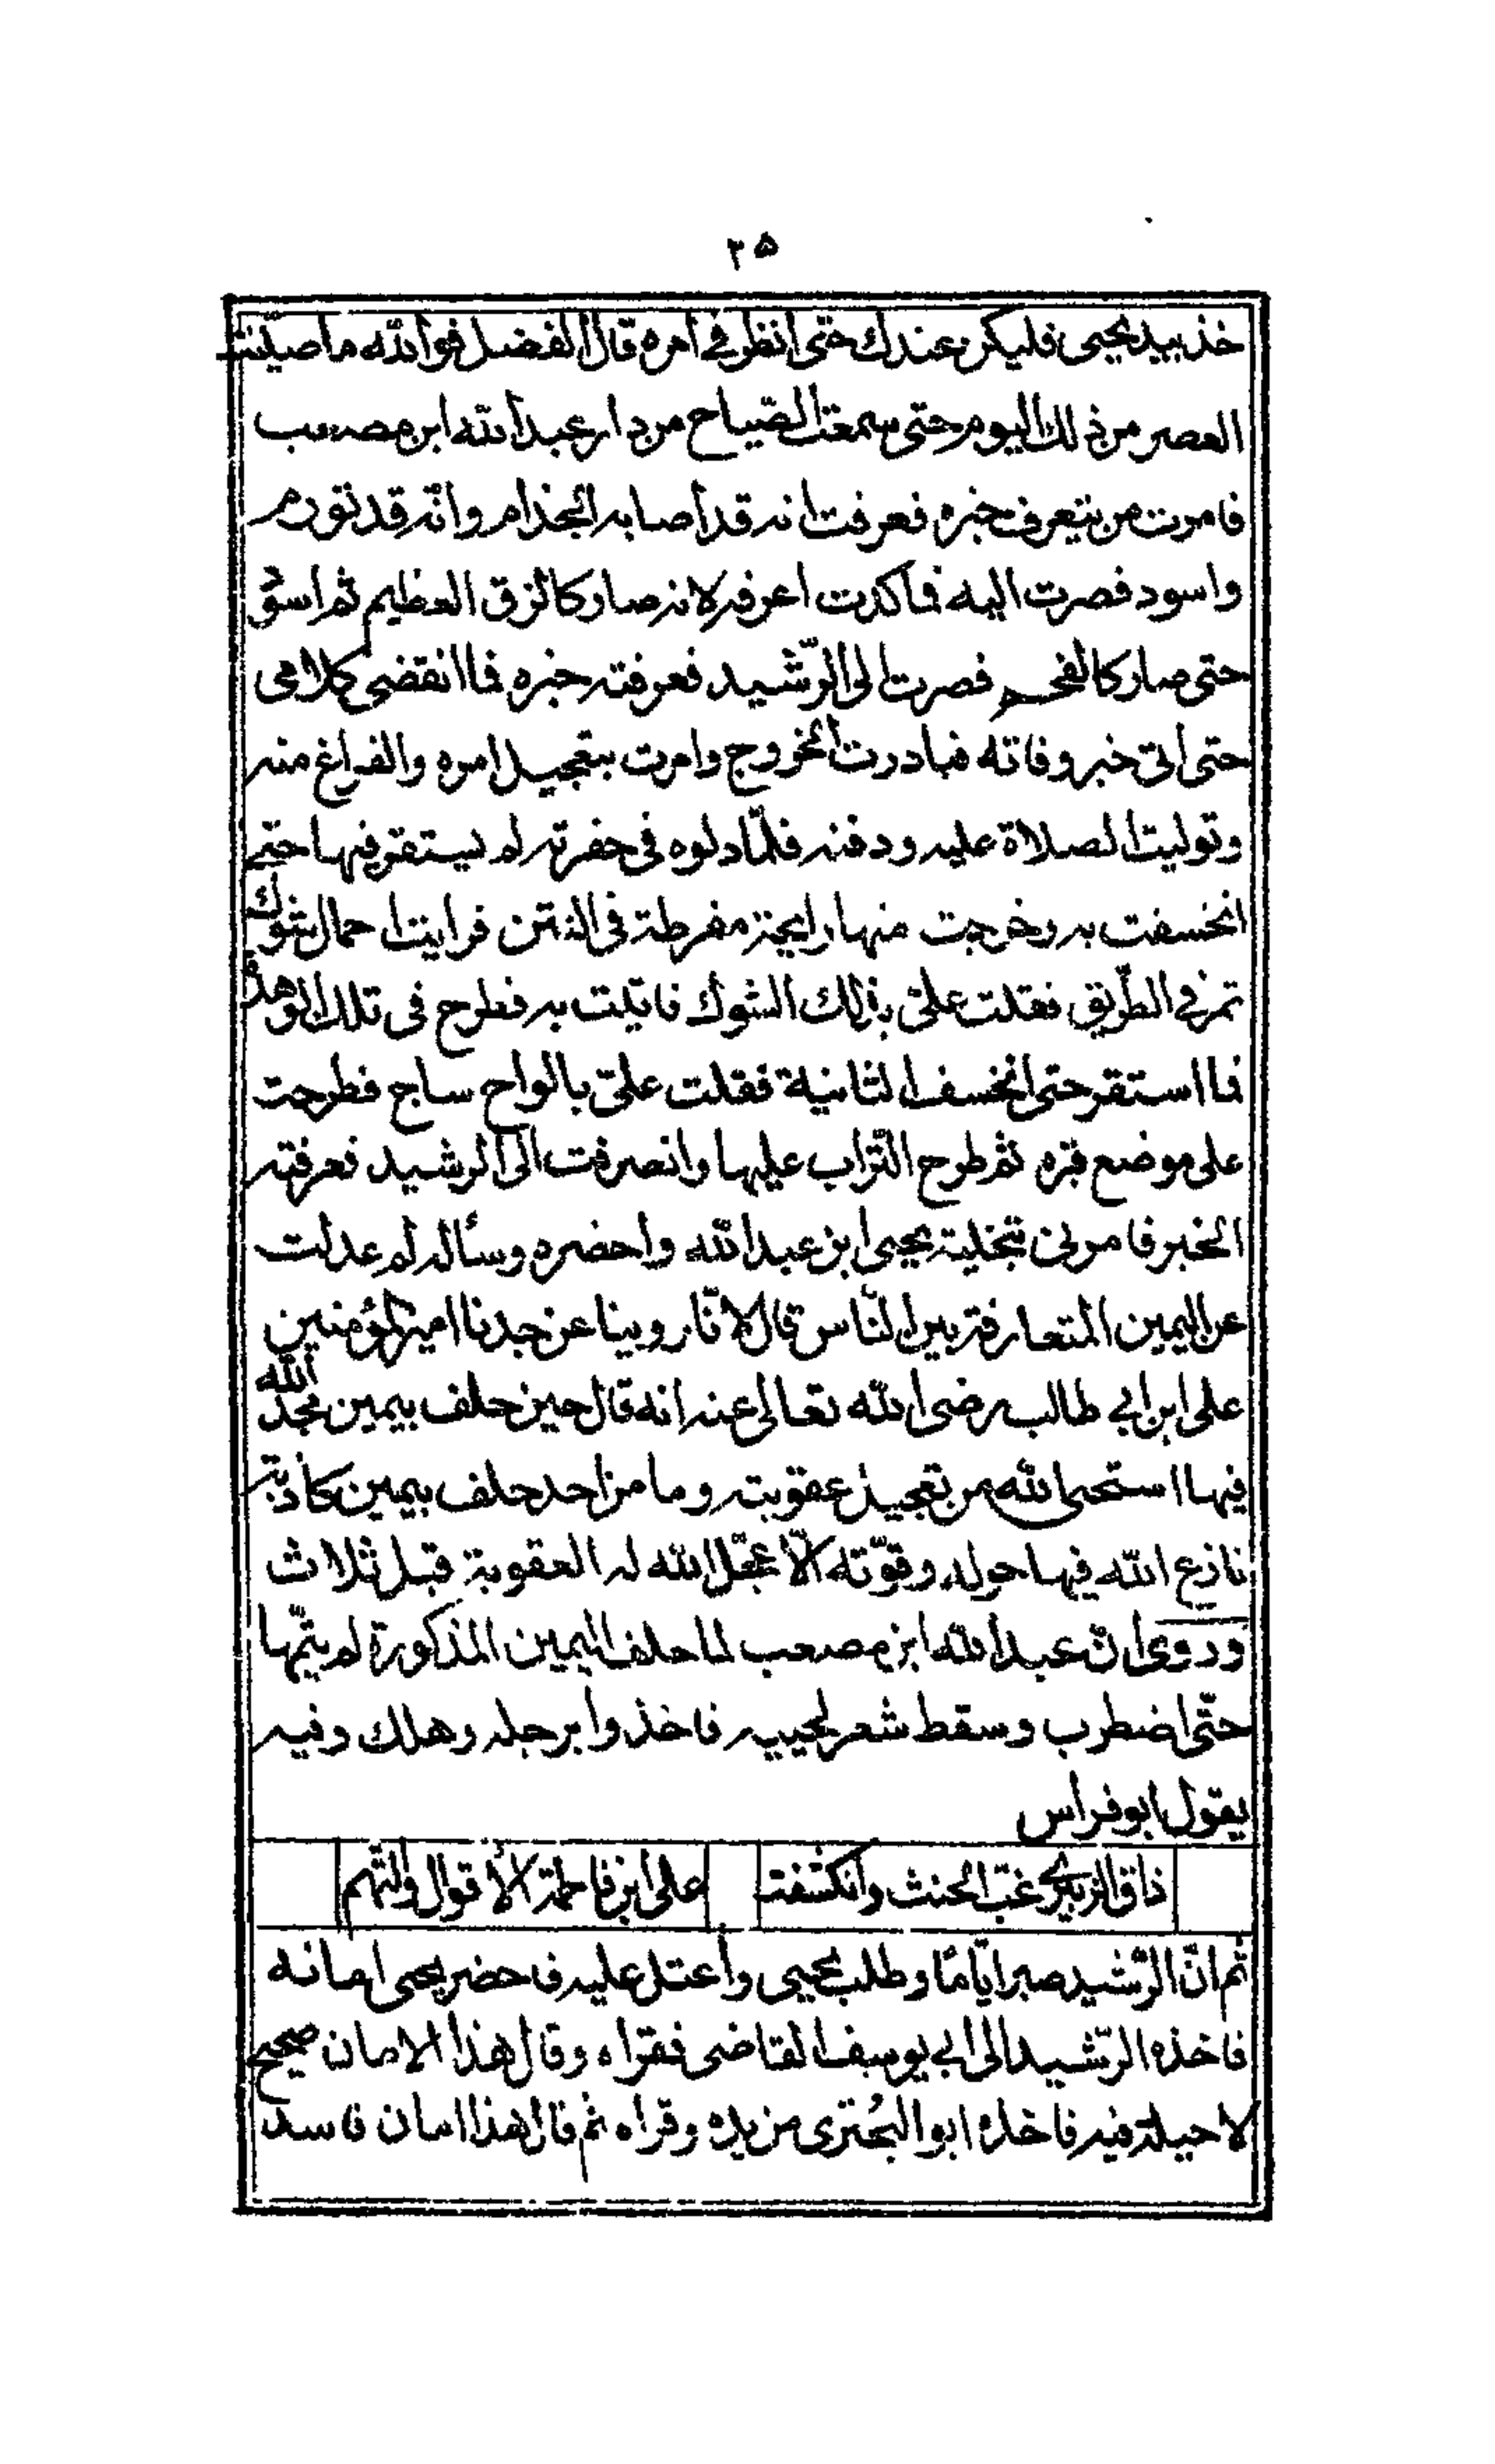 ٣٥
خذ بيد يحيى فليكن عندك حتى انظر في امره قال الفضل فوالله ما صلّيت
العصر من ذلك اليوم حتى سمعت الصّياح من دار عبد الله ابن مصعب
فامرت من يتعرف خبره فعرفت انه قد أصابه الجذام وانّه قد تورم
واسود فصرت اليه فما كدت اعرفه لانه صار كالزق العظيم ثم اسودّ
حتى صار كالفحم فصرت الى الرّشيد فعرفته خبره فما انقضى كلامى
حتى اتى خبر وفاته فبادرت الخروج وامرت بتعجيل امره والفراغ منه
وتوليت الصلاة عليه ودفنه فلمّا دلوه فى حفرته لم يستقر فيها حتى
انخسفت به وخرجت منها رايحة مفرطة فى النتن فرايت احمال شوك
تمر في الطّريق فقلت علىّ بذلك الشوك فاتيت به فطرح فى تلك الوهدة
فما استقر حتى انخسف الثانية فقلت علىّ بالواح ساج فطرحت
على موضع قبره ثم طرح التّراب عليها وانصرفت الى الرشيد فعرفته
الخبر فامرنى بتخلية يحيى ابن عبد الله واحضره وسأله لم عدلت
عن اليمين المتعارفة بين النّاس قال لانّا روينا عن جدنا امير المؤمنين
على ابن ابي طالب رضى الله تعالى عنه انه قال من حلف بيمين مجّد الله
فيها استحى الله من تعجيل عقوبته وما من احد حلف بيمين كاذبة
نازع الله فيها حوله وقوّته الّا عجّل الله له العقوبة قبل ثلاث
وروى ان عبد الله ابن مصعب لما حلف اليمين المذكورة لم يتمّها
حتّى اضطرب وسقط شعر لحييه فاخذوا برجله وهلك وفيه
يقول ابو فراس
ذاق الزبيرى غبّ الحنث وانكشفت على ابن فاطمة الأقوال والتّهم
ثم انّ الرّشيد صبر ايّامًا وطلب يحيى واعتل عليه فاحضر يحيى امانه
فاخذه الرّشيد الى ابي يوسف القاضى فقراه وقال هذا الامان صحيح
لا حيلة فيه فاخذه ابو البُخترى من يده وقراه ثم قال هذا امان فاسد